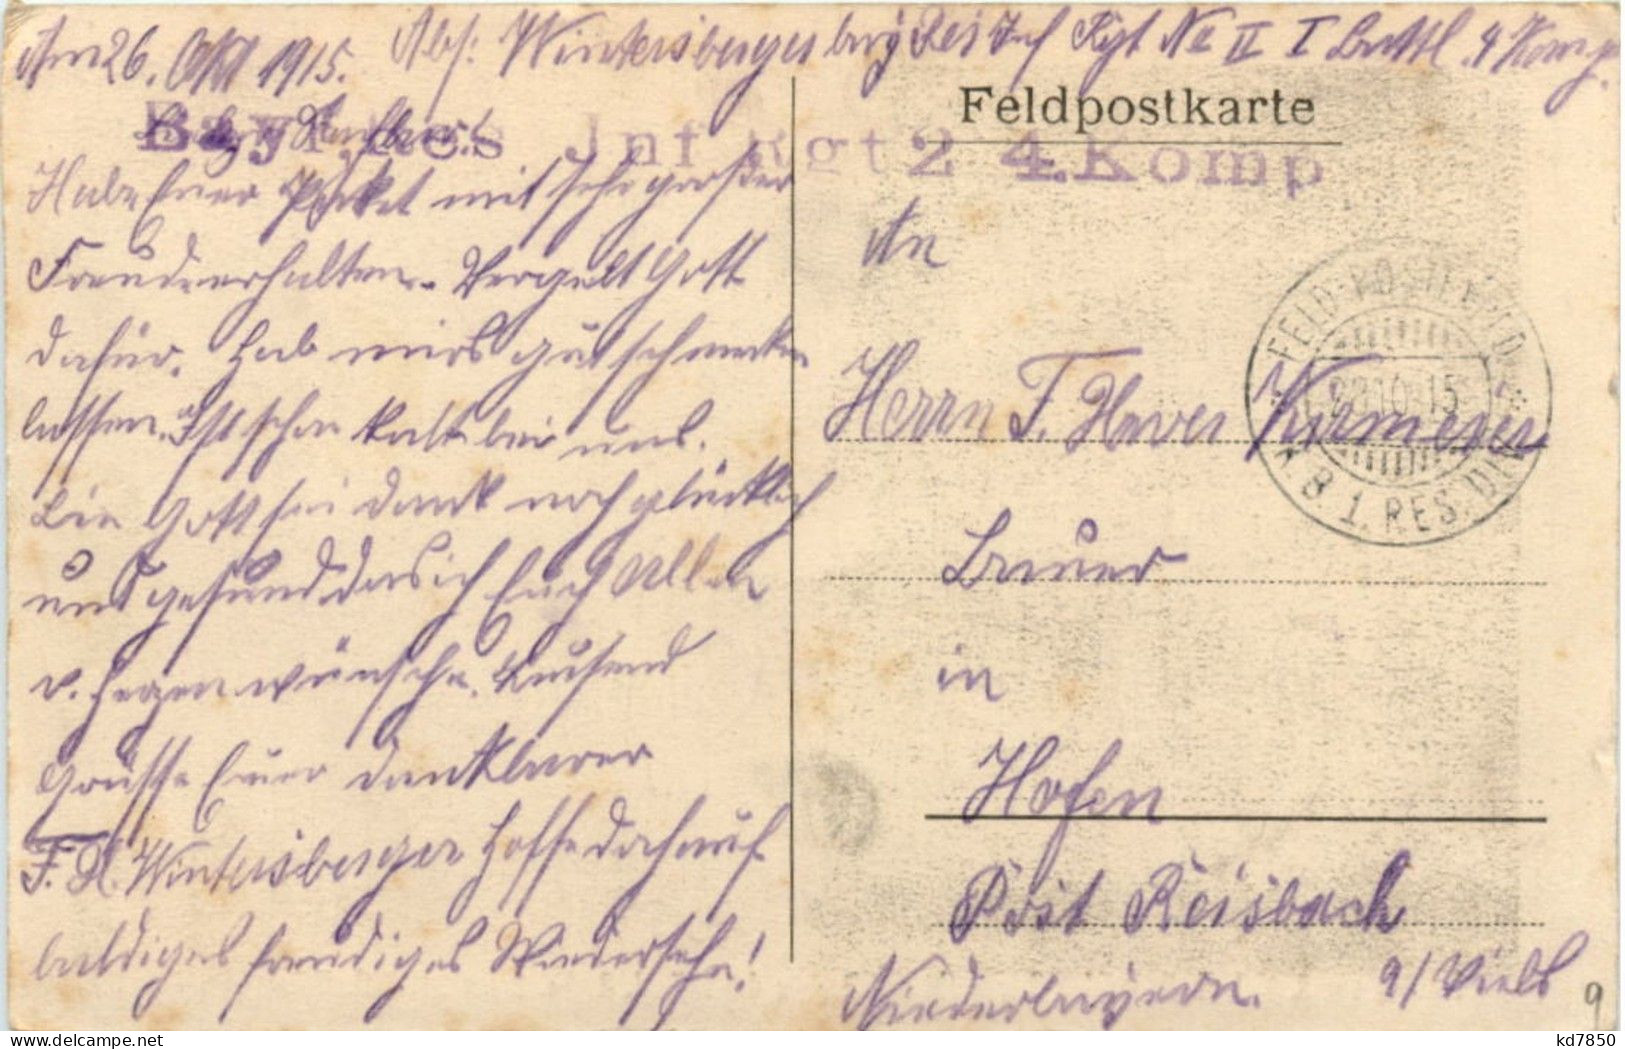 Am 26. Okt 1915. Abs: Wintersberger bay Res Inf Rgt No II I Battl. 4 Komp.
Feldpostkarte
Bayr Res Inf Rgt 2 4. Komp
Habe Euer Paket mit sehr großer
Freude erhalten. Vergelt Gott
dafür. Hab mirs gut schmecken
lassen. Ist schon kalt bei uns.
Bin Gott sei dank noch glücklich
und gesund das ich Euch allen
v. Herzen wünsche. Tausend
Grüsse Euer dankbarer
F. X. Wintersberger Hoffe doch auf
baldiges freudiges Wiedersehn!
An
Herrn F. Xaver Kirmeier
Bauer
in
Hofen
Post Reisbach
Niederbayern.
FELD-POSTEXPED.
10.15
B. 1. RES. DIV.
9
kd7850